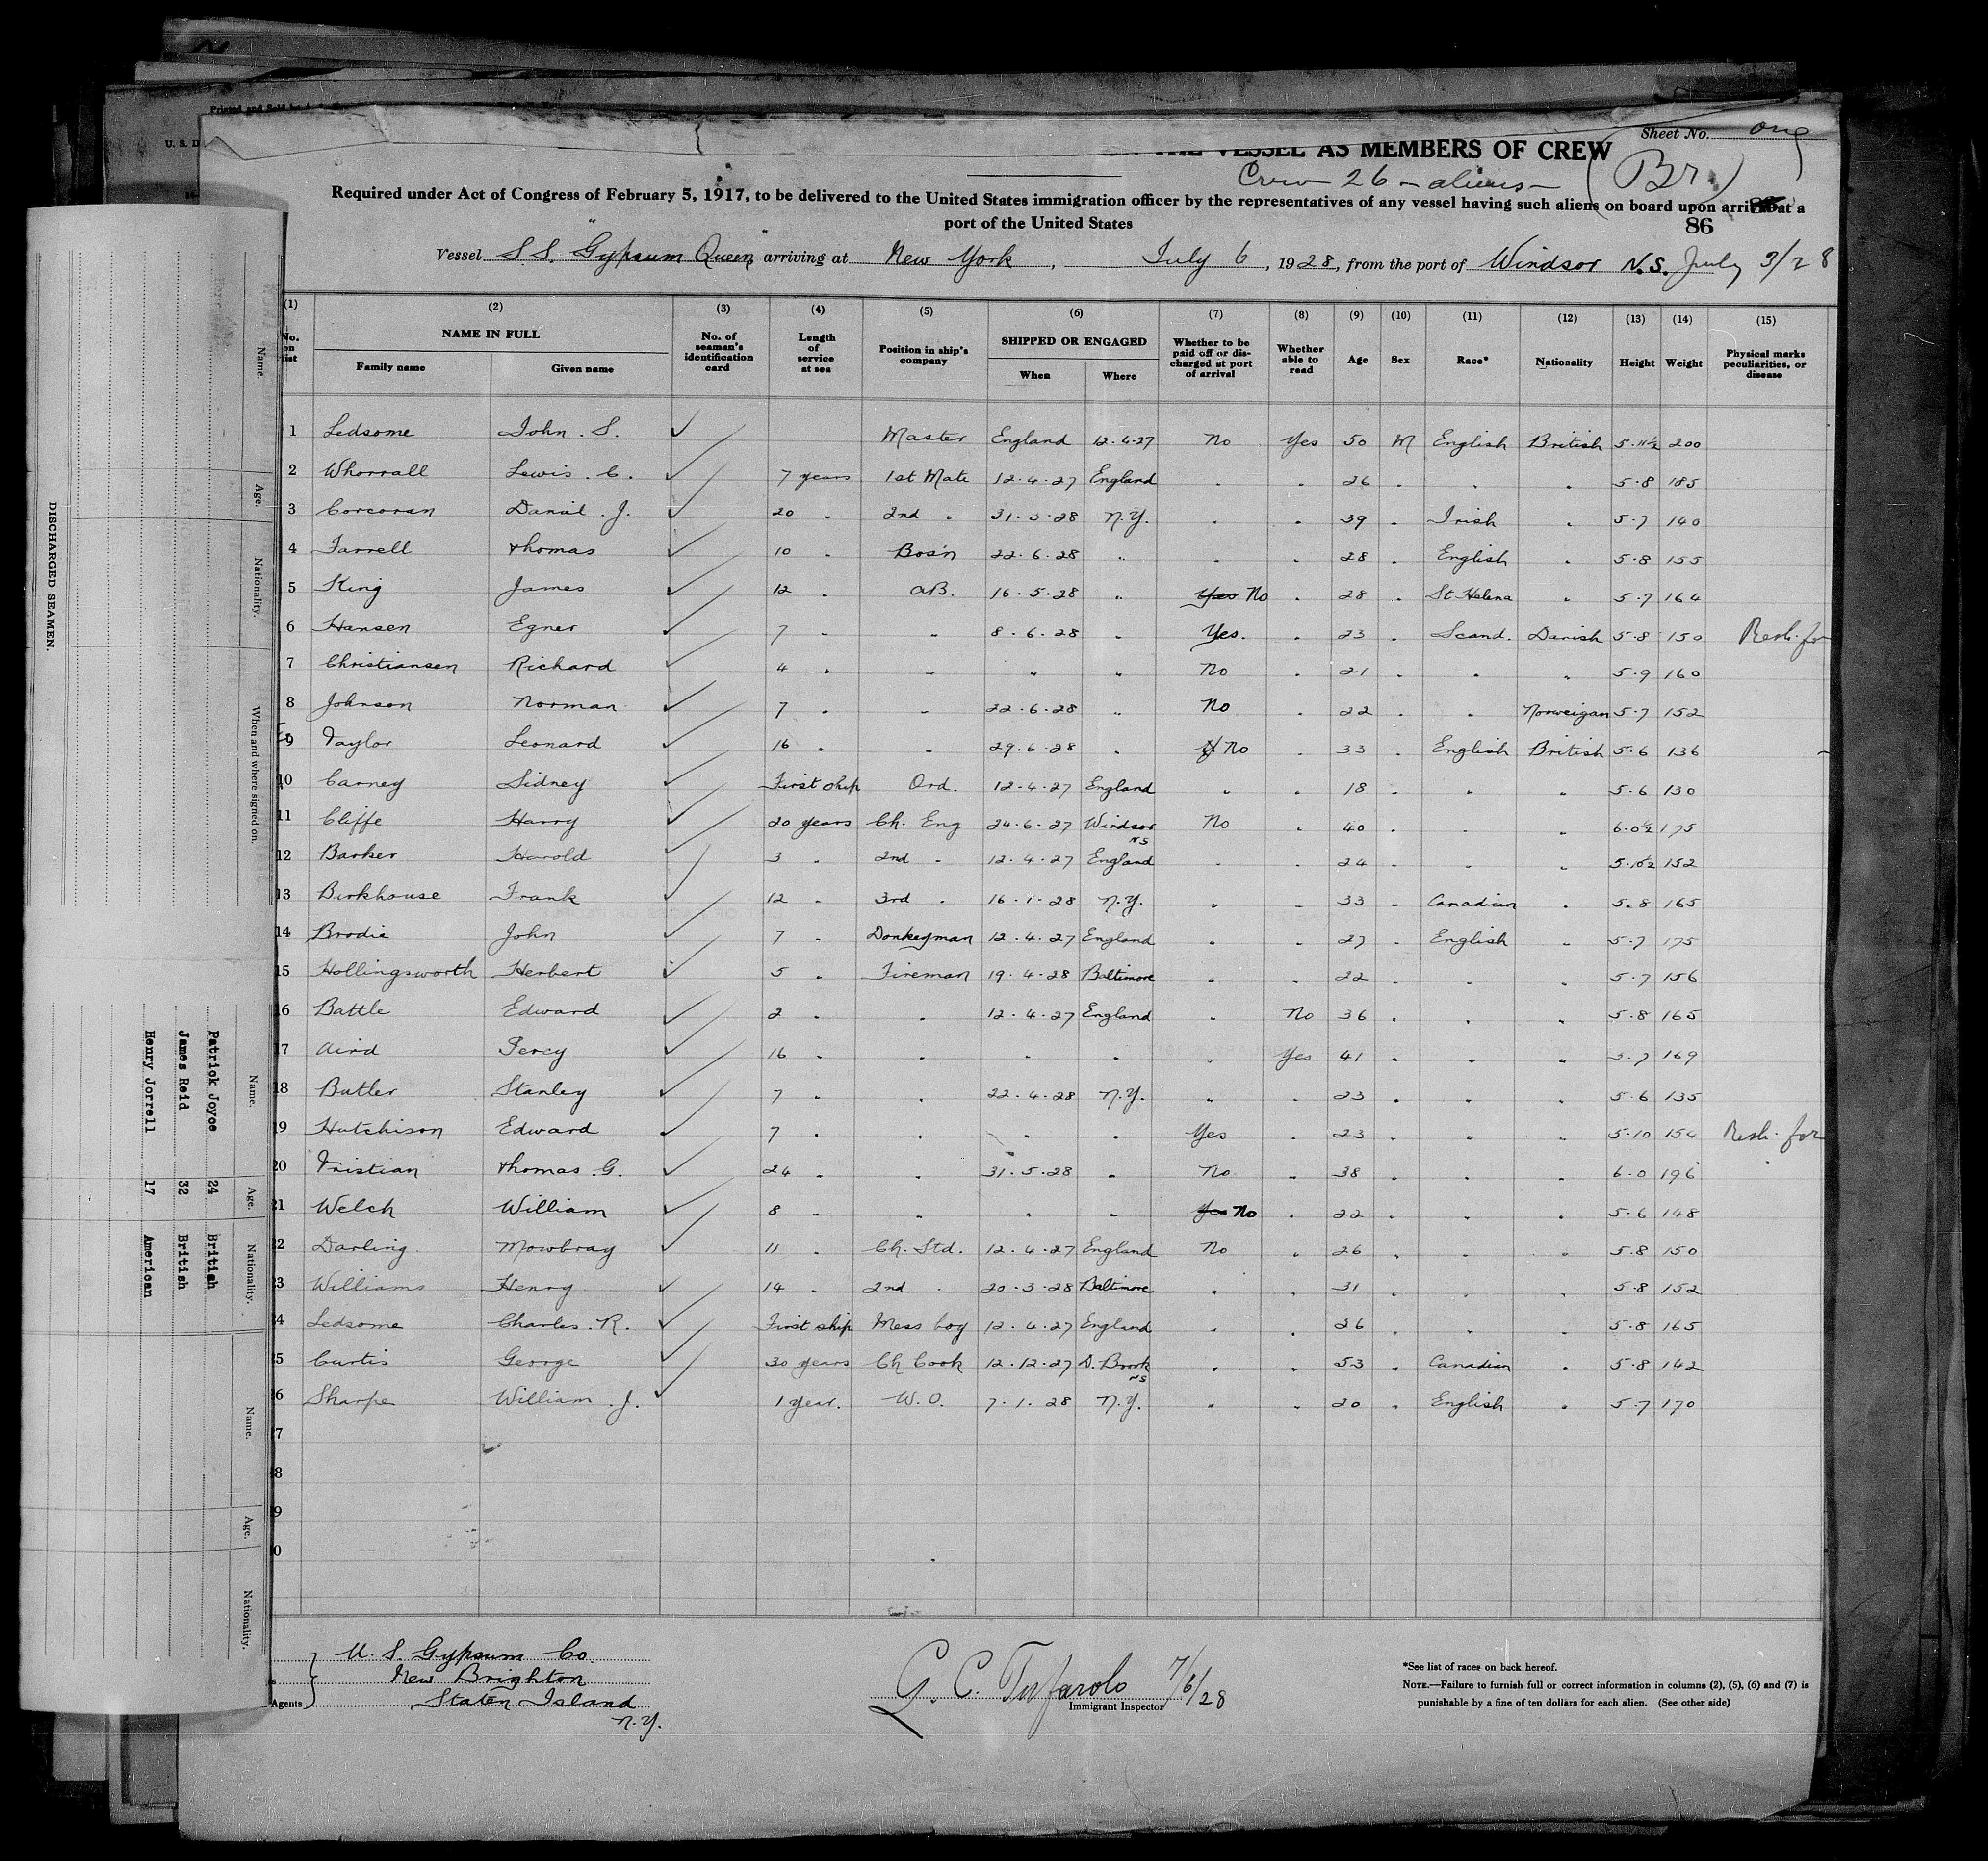 Printed and Sold by
U. S. D
Sheet No. one
THE VESSEL AS MEMBERS OF CREW
Crew 26 - aliens - (Br.)
Required under Act of Congress of February 5, 1917, to be delivered to the United States immigration officer by the representatives of any vessel having such aliens on board upon arrival at a
port of the United States
86
Vessel S.S. "Gypsum Queen" arriving at New York, July 6, 1928, from the port of Windsor N.S. July 3/28
(1) (2) (3) (4) (5) (6) (7) (8) (9) (10) (11) (12) (13) (14) (15)
No. on list NAME IN FULL Family name Given name No. of seaman's identification card Length of service at sea Position in ship's company SHIPPED OR ENGAGED When Where Whether to be paid off or discharged at port of arrival Whether able to read Age Sex Race* Nationality Height Weight Physical marks peculiarities, or disease
1 Ledsome John. S. ✓ Master England 12.4.27 No Yes 50 M English British 5.11½ 200
2 Whorrall Lewis. C. ✓ 7 years 1st Mate 12.4.27 England " " 26 " " " 5.8 185
3 Corcoran Daniel. J. ✓ 20 " 2nd " 31.5.28 N.Y. " " 39 " Irish " 5.7 140
4 Farrell Thomas ✓ 10 " Bos'n 22.6.28 " " " 28 " English " 5.8 155
5 King James ✓ 12 " AB. 16.5.28 " Yes No " 28 " St Helena " 5.7 164
6 Hansen Egner ✓ 7 " " 8.6.28 " Yes. " 23 " Scand. Danish 5.8 150 Resh. for
7 Christiansen Richard ✓ 4 " " " " No " 21 " " " 5.9 160
8 Johnson Norman ✓ 7 " " 22.6.28 " No " 22 " " Norweigan 5.7 152
9 Taylor Leonard ✓ 16 " " 29.6.28 " No " 33 " English British 5.6 136
10 Carney Sidney ✓ First ship Ord. 12.4.27 England " " 18 " " " 5.6 130
11 Cliffe Harry ✓ 20 years Ch. Eng 24.6.27 Windsor NS No " 40 " " " 6.0½ 175
12 Barker Harold ✓ 3 " 2nd " 12.4.27 England " " 24 " " " 5.10½ 152
13 Birkhouse Frank ✓ 12 " 3rd " 16.1.28 N.Y. " " 33 " Canadian " 5.8 165
14 Brodie John ✓ 7 " Donkeyman 12.4.27 England " " 27 " English " 5.7 175
15 Hollingsworth Herbert ✓ 5 " Fireman 19.4.28 Baltimore " " 22 " " " 5.7 156
16 Battle Edward ✓ 2 " " 12.4.27 England " No 36 " " " 5.8 165
17 Aird Percy ✓ 16 " " " " " Yes 41 " " " 5.7 169
18 Butler Stanley ✓ 7 " " 22.4.28 N.Y. " " 23 " " " 5.6 135
19 Hutchison Edward ✓ 7 " " " " Yes " 23 " " " 5.10 154 Resh. for
20 Tristian Thomas G. ✓ 24 " " 31.5.28 " No " 38 " " " 6.0 196
21 Welch William ✓ 8 " " " " Yes No " 22 " " " 5.6 148
22 Darling Mowbray ✓ 11 " Ch. Std. 12.4.27 England No " 26 " " " 5.8 150
23 Williams Henry ✓ 14 " 2nd " 20.3.28 Baltimore " " 31 " " " 5.8 152
24 Ledsome Charles. R. ✓ First ship Mess boy 12.4.27 England " " 26 " " " 5.8 165
25 Curtis George ✓ 30 years Ch Cook 12.12.27 D. Brook NS " " 53 " Canadian " 5.8 142
26 Sharpe William. J. ✓ 1 year. W.O. 7.1.28 N.Y. " " 20 " English " 5.7 170
7
8
9
0
U. S. Gypsum Co.
New Brighton
Agents Staten Island
N.Y.
G. C. Tufarolo 7/6/28
Immigrant Inspector
*See list of races on back hereof.
NOTE.—Failure to furnish full or correct information in columns (2), (5), (6) and (7) is
punishable by a fine of ten dollars for each alien. (See other side)
DISCHARGED SEAMEN.
Name. Age. Nationality. When and where signed on.
Name. Age. Nationality.
Patrick Joyce 24 British
James Reid 32 British
Henry Jorrell 17 American
Name. Age. Nationality.